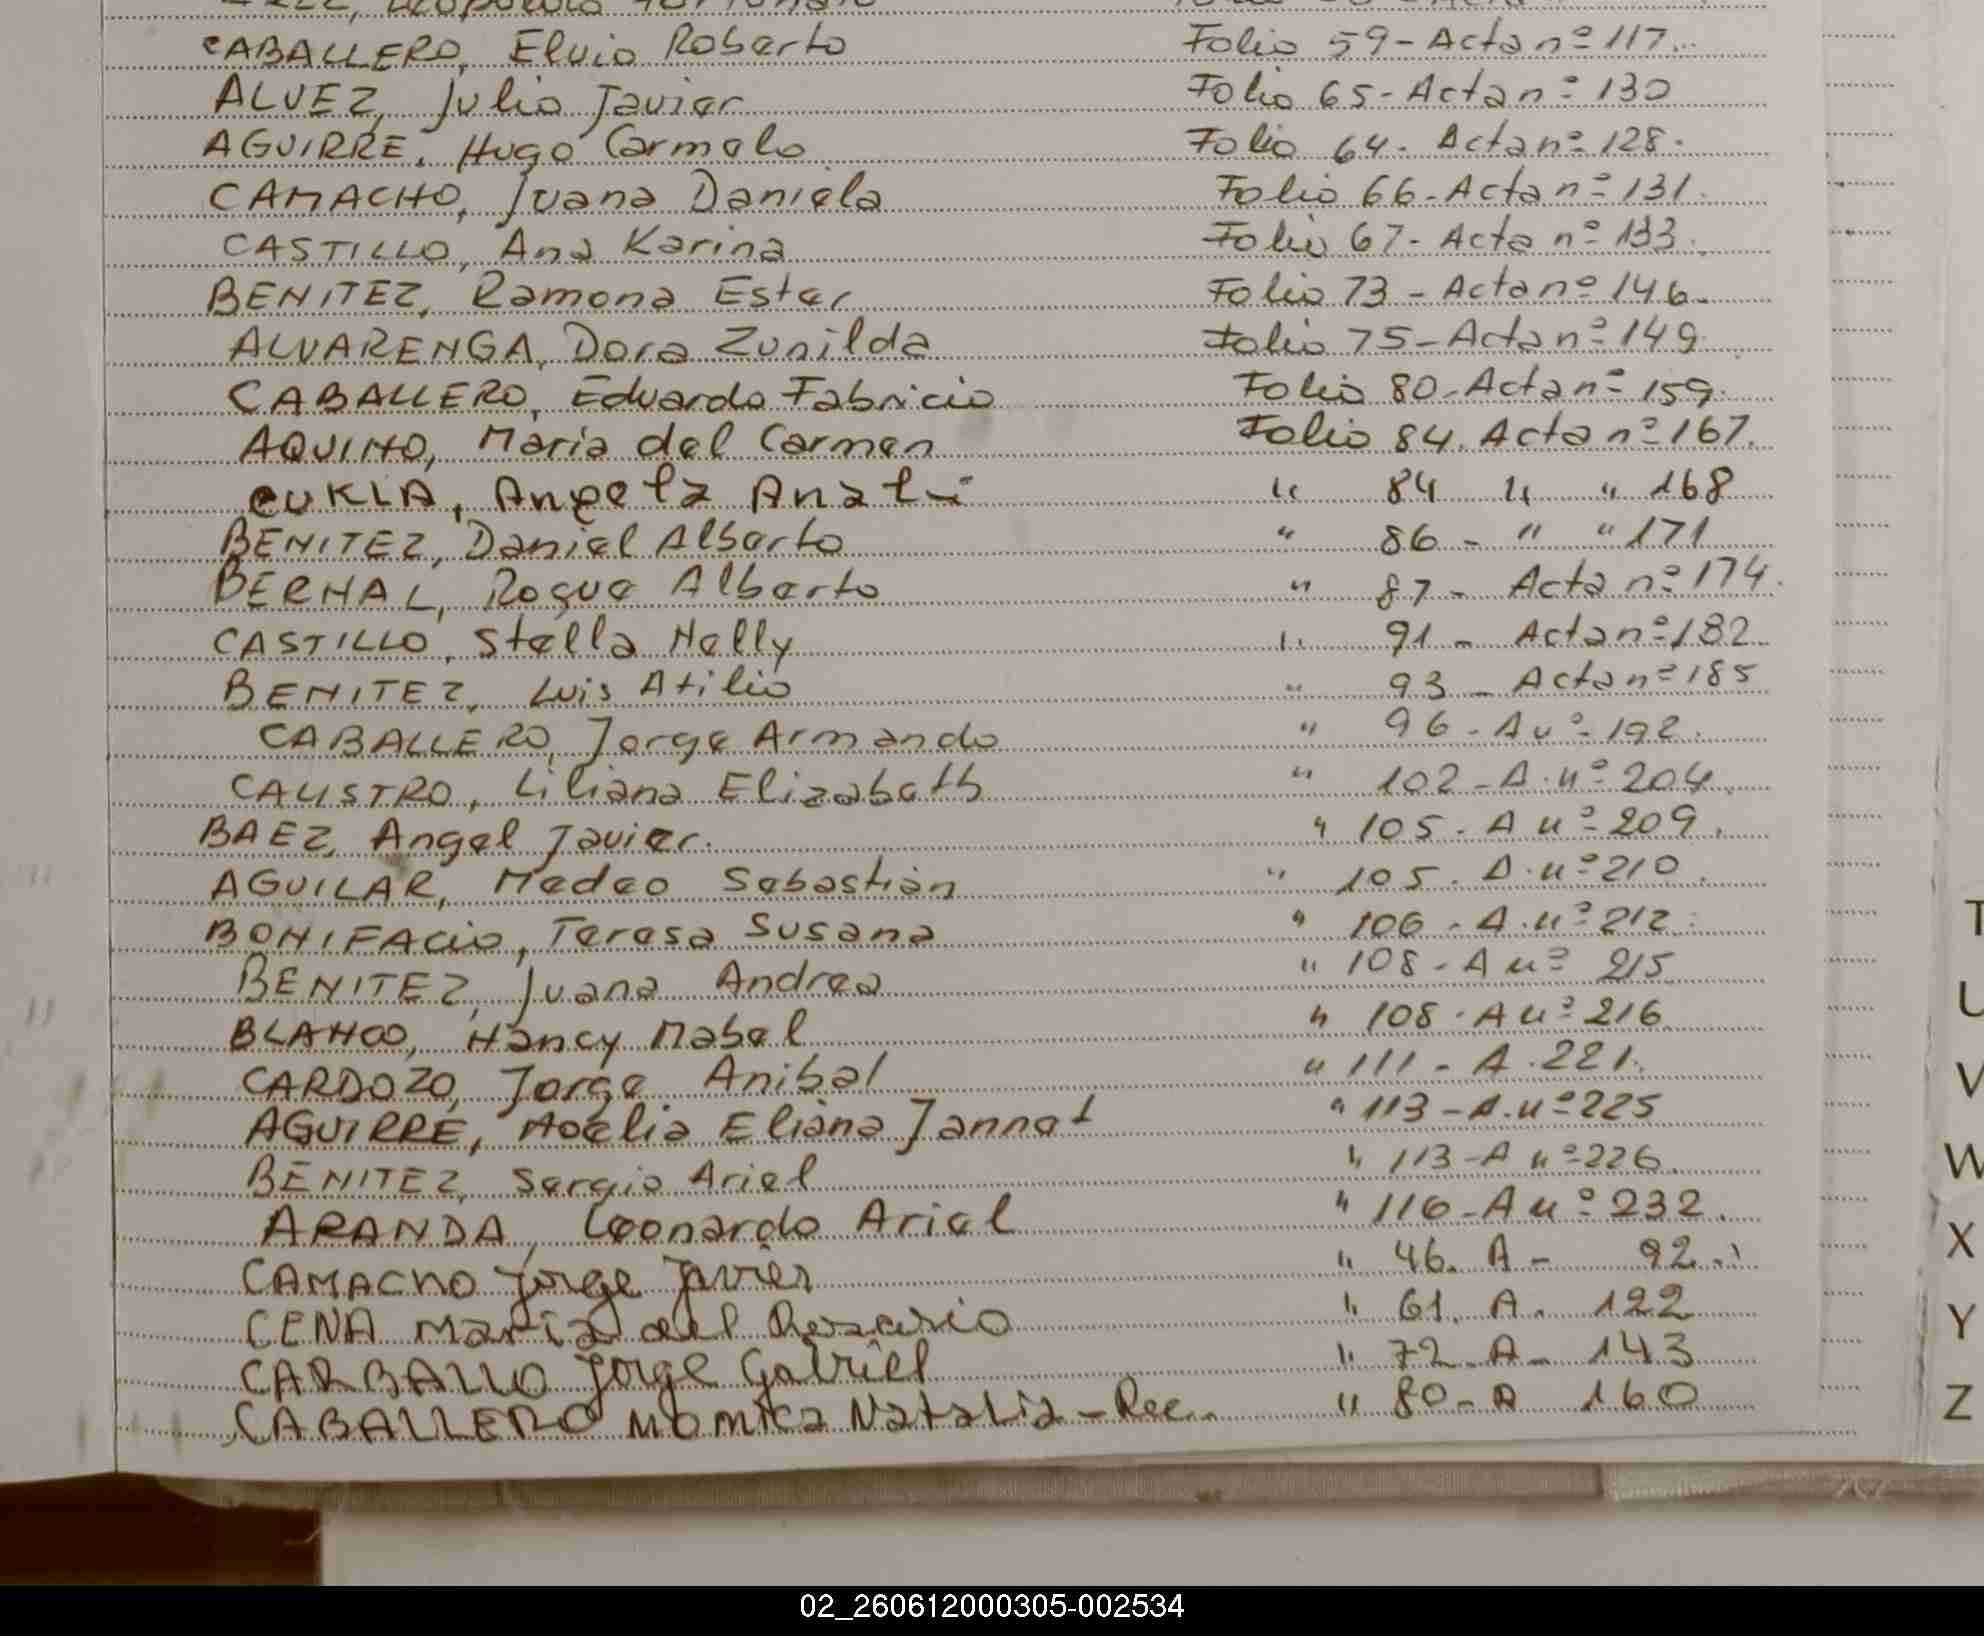 CABALLERO, Elvio Roberto Folio 59 - Acta nº 117.
ALVEZ, Julio Javier Folio 65 - Acta nº 130
AGUIRRE, Hugo Carmelo Folio 64. Acta nº 128.
CAMACHO, Juana Daniela Folio 66 - Acta nº 131.
CASTILLO, Ana Karina Folio 67 - Acta nº 133.
BENITEZ, Ramona Ester Folio 73 - Acta nº 146.
ALVARENGA, Dora Zunilda Folio 75 - Acta nº 149.
CABALLERO, Eduardo Fabricio Folio 80 - Acta nº 159.
AQUINO, Maria del Carmen Folio 84. Acta nº 167.
CUKLA, Angela Analí " 84 " " 168
BENITEZ, Daniel Alberto " 86 - " " 171
BERNAL, Roque Alberto " 87 - Acta nº 174.
CASTILLO, Stella Nelly " 91 - Acta nº 182.
BENITEZ, Luis Atilio " 93 - Acta nº 185
CABALLERO, Jorge Armando " 96 - A nº 192.
CALISTRO, Liliana Elizabeth " 102 - A. nº 204.
BAEZ, Angel Javier. " 105 - A nº 209.
AGUILAR, Sebastián " 105 - A. nº 210.
BONIFACIO, Teresa Susana " 106 - A. nº 212.
BENITEZ, Juana Andrea " 108 - A nº 215
BLANCO, Nancy Mabel " 108 - A nº 216
CARDOZO, Jorge Anibal " 111 - A. 221.
AGUIRRE, Eliana Jannet " 113 - A. nº 225
BENITEZ, Sergio Ariel " 113 - A nº 226.
ARANDA, Leonardo Ariel " 116 - A nº 232.
CAMACHO Jorge Javier " 46. A - 92.
CENA Maria del Rosario " 61. A. 122
CARBALLO Jorge Gabriel " 72 - A - 143
CABALLERO Monica Natalia - Rec. " 80 - A 160
T
U
V
W
X
Y
Z
02_260612000305-002534